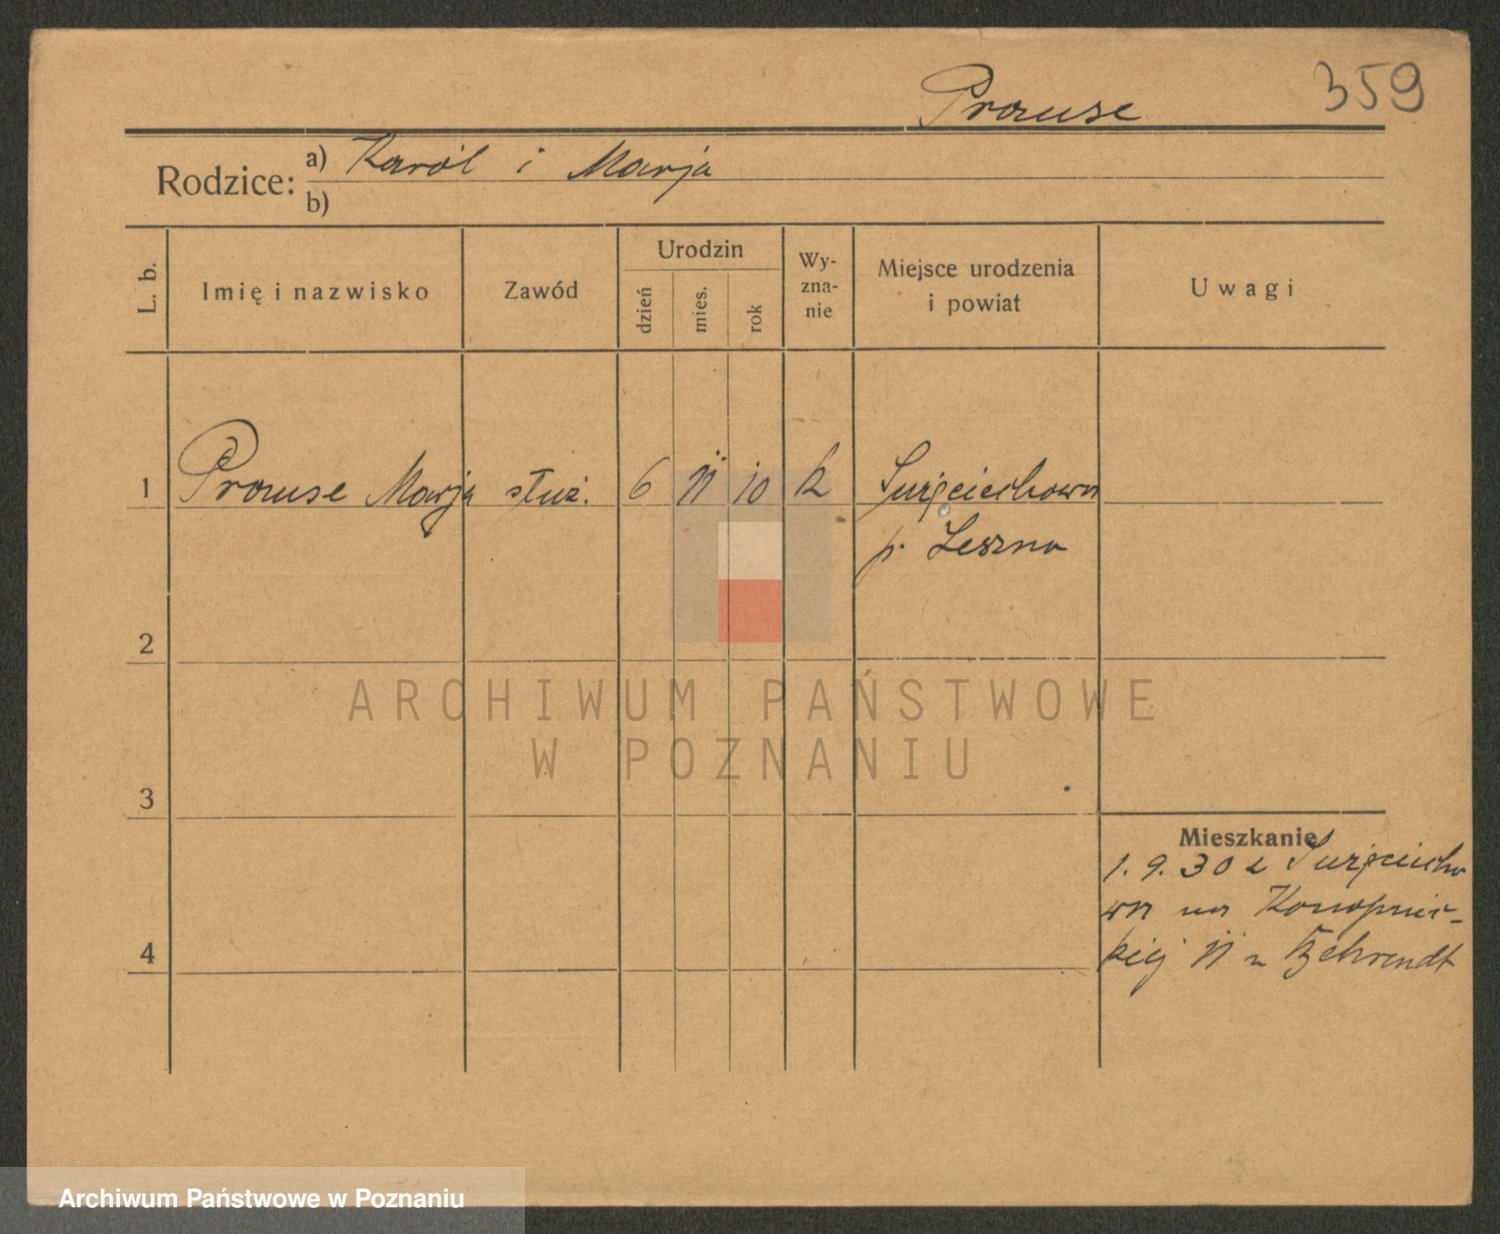 359
Prause
Rodzice: a) Karól i Marja
b)
L. b.
Imię i nazwisko
Zawód
Urodzin
dzień
mies.
rok
Wy-
zna-
nie
Miejsce urodzenia
i powiat
Uwagi
1 Prause Marja służ. 6 II 10 k
p. Leszno
2
3
4
Mieszkanie
1. 9. 30 z
na Konopnic-
kiej II u Behrendt
ARCHIWUM PAŃSTWOWE
W POZNANIU
Archiwum Państwowe w Poznaniu